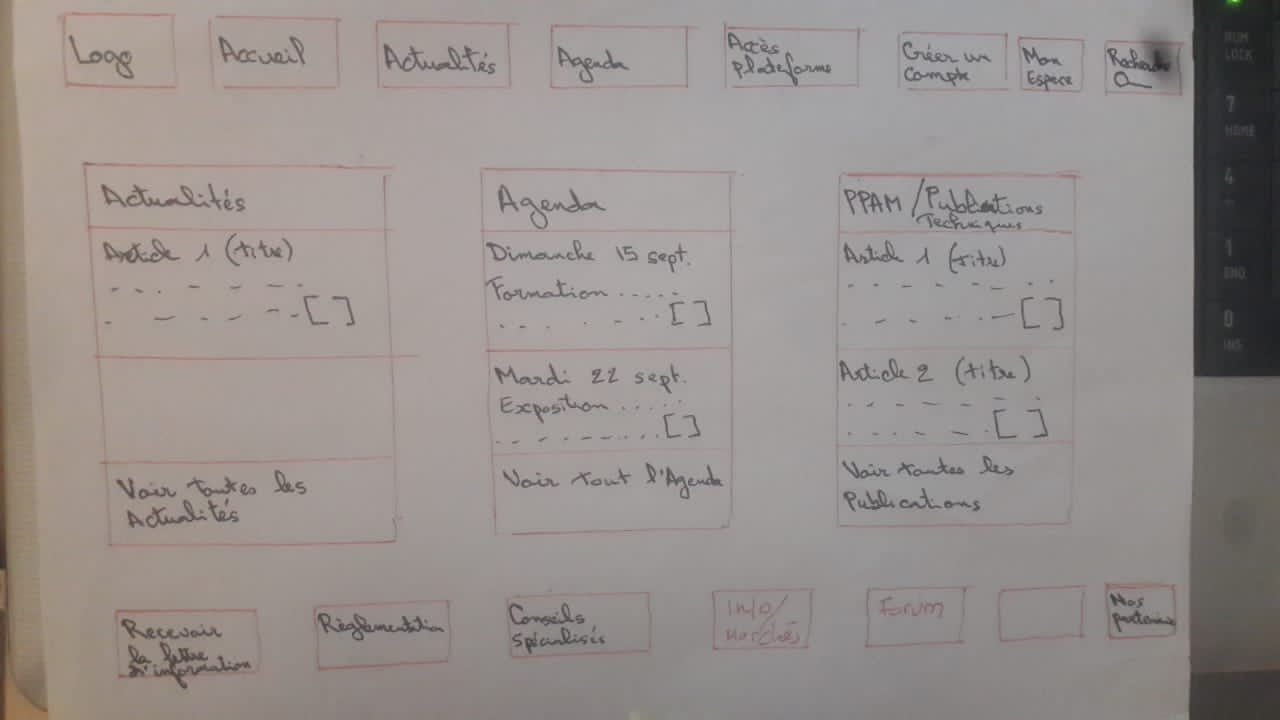 Logo
Accueil
Actualités
Agenda
Accès
plateforme
Créer un
compte
Mon
Espace
Recherche
Actualités
Article 1 (titre)
Voir toutes les
Actualités
Agenda
Dimanche 15 sept.
Formation .....
Mardi 22 sept.
Exposition .....
Voir tout l'Agenda
PPAM / Publications
Techniques
Article 1 (titre)
Article 2 (titre)
Voir toutes les
Publications
Recevoir
la lettre
d'information
Règlementation
Conseils
spécialisés
Info/
Marchés
Forum
Nos
partenaires
NUM
LOCK
7
HOME
4
1
END
0
INS